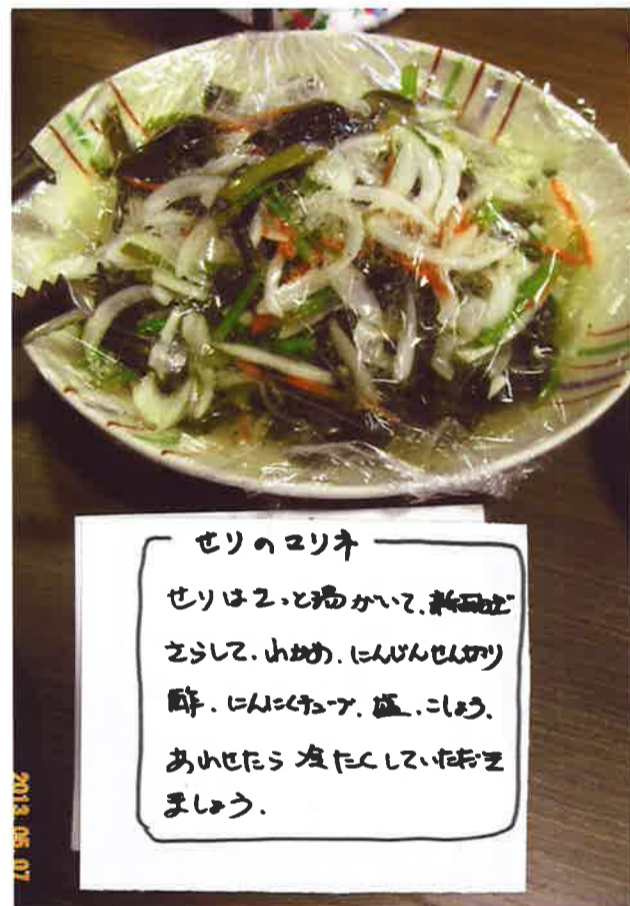 せりのマリネ
せりはさっと湯がいて、新玉ねぎ
さらして、わかめ、にんじんせん切り
酢、にんにくチューブ、塩、こしょう、
あわせたら 冷たくしていただき
ましょう。
2013 05 07